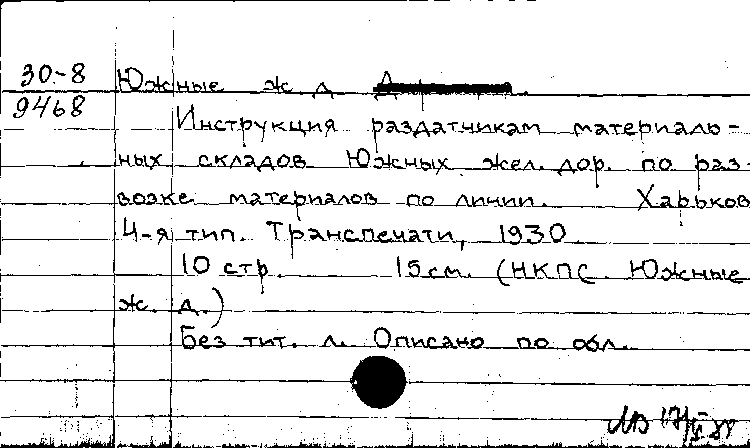 30-8
9468
Южные ж. д.
Инструкция раздатчикам материаль-
ных складов Южных жел. дор. по раз-
возке материалов по линии. Харьков
4-я тип. Транспечати, 1930
10 стр. 15 см. (НКПС. Южные
ж. д.)
Без тит. л. Описано по обл.